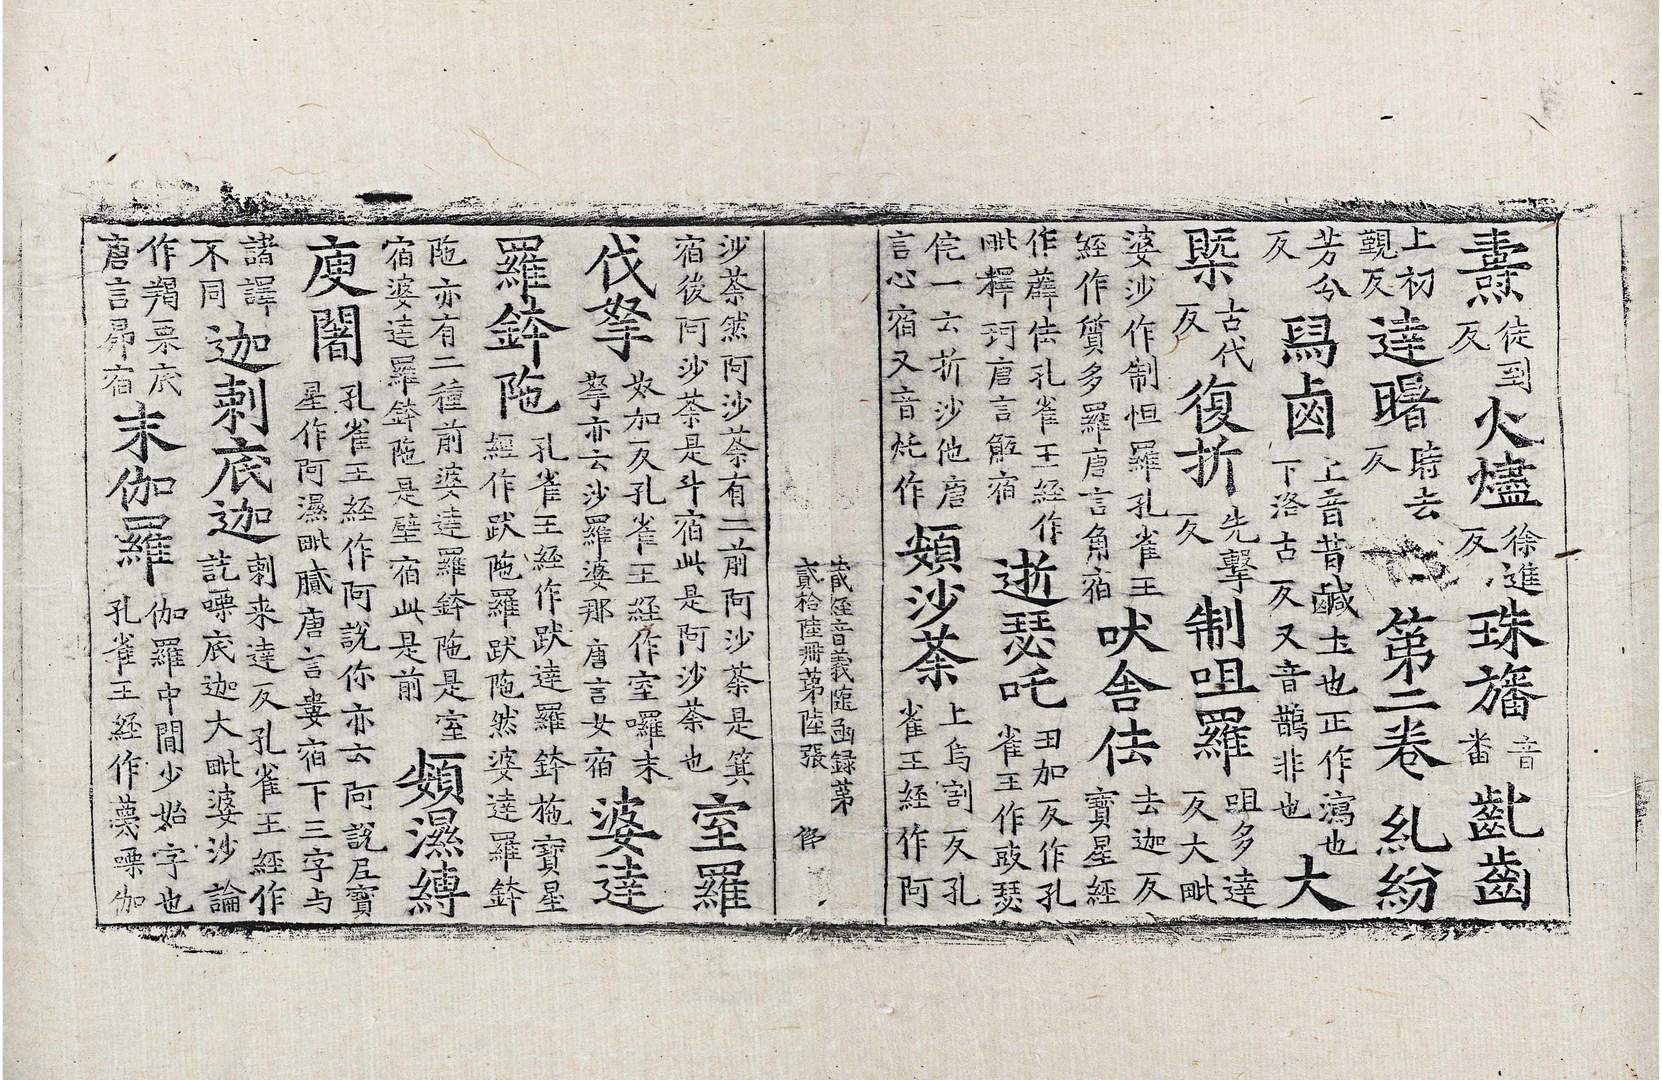 燾徒到反火燼徐進反珠旛音番齔齒
上初覲反達曙時去反第二卷糺紛
芳分反舄鹵上音昔鹹土也正作瀉也下洛古反又音鵲非也大
槩古代反復折先擊反制咀羅咀多達反大毗
婆沙作制怛羅孔雀王經作質多羅唐言角宿吠舍佉去迦反寶星經
作薜佉孔雀王經作毗釋珂唐言氐宿逝瑟吒丑加反作孔雀王作豉瑟
侘一云折沙他唐言心宿又音灹作頞沙荼上烏割反孔雀王經作阿
藏經音義隨函錄第貳拾陸冊第陸張
沙荼然阿沙荼有二前阿沙荼是箕宿後阿沙荼是斗宿此是阿沙荼也室羅
伐拏女加反孔雀王經作室囉末拏亦云沙羅婆那唐言女宿婆達
羅鉢陁孔雀王經作跋達羅鉢柂寶星經作跋陁羅跋陁然婆達羅鉢
陁亦有二種前婆達羅鉢陁是室宿婆達羅鉢陁是壁宿此是前頞濕縛
庾闍孔雀王經作阿說你亦云阿說𡰱寶星作阿濕毗膩唐言婁宿下三字与
諸譯不同迦剌底迦剌来達反孔雀王經作訖㗚底迦大毗婆沙論
作羯栗底唐言昴宿末伽羅伽羅中間少始字也孔雀王經作蔑㗚伽